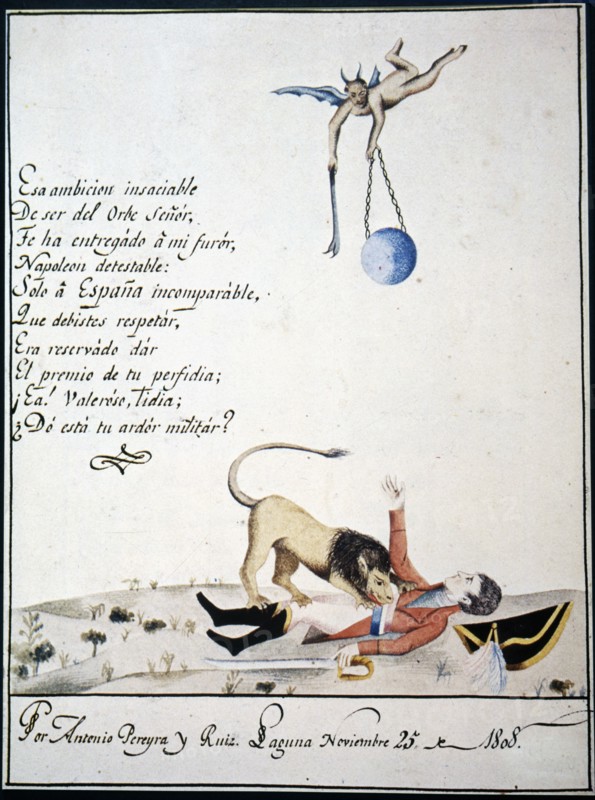 Esa ambicion insaciable
De ser del Orbe Señór,
Te ha entregádo â mi furór,
Napoleon detestable:
Solo â España incomparáble,
Que debistes respetár,
Era reservádo dár
El premio de tu perfidia;
¡Ea! Valeróso, Lidia;
¿Dó está tu ardór militár?
Por Antonio Pereyra y Ruiz. Laguna Noviembre 25. de 1808.